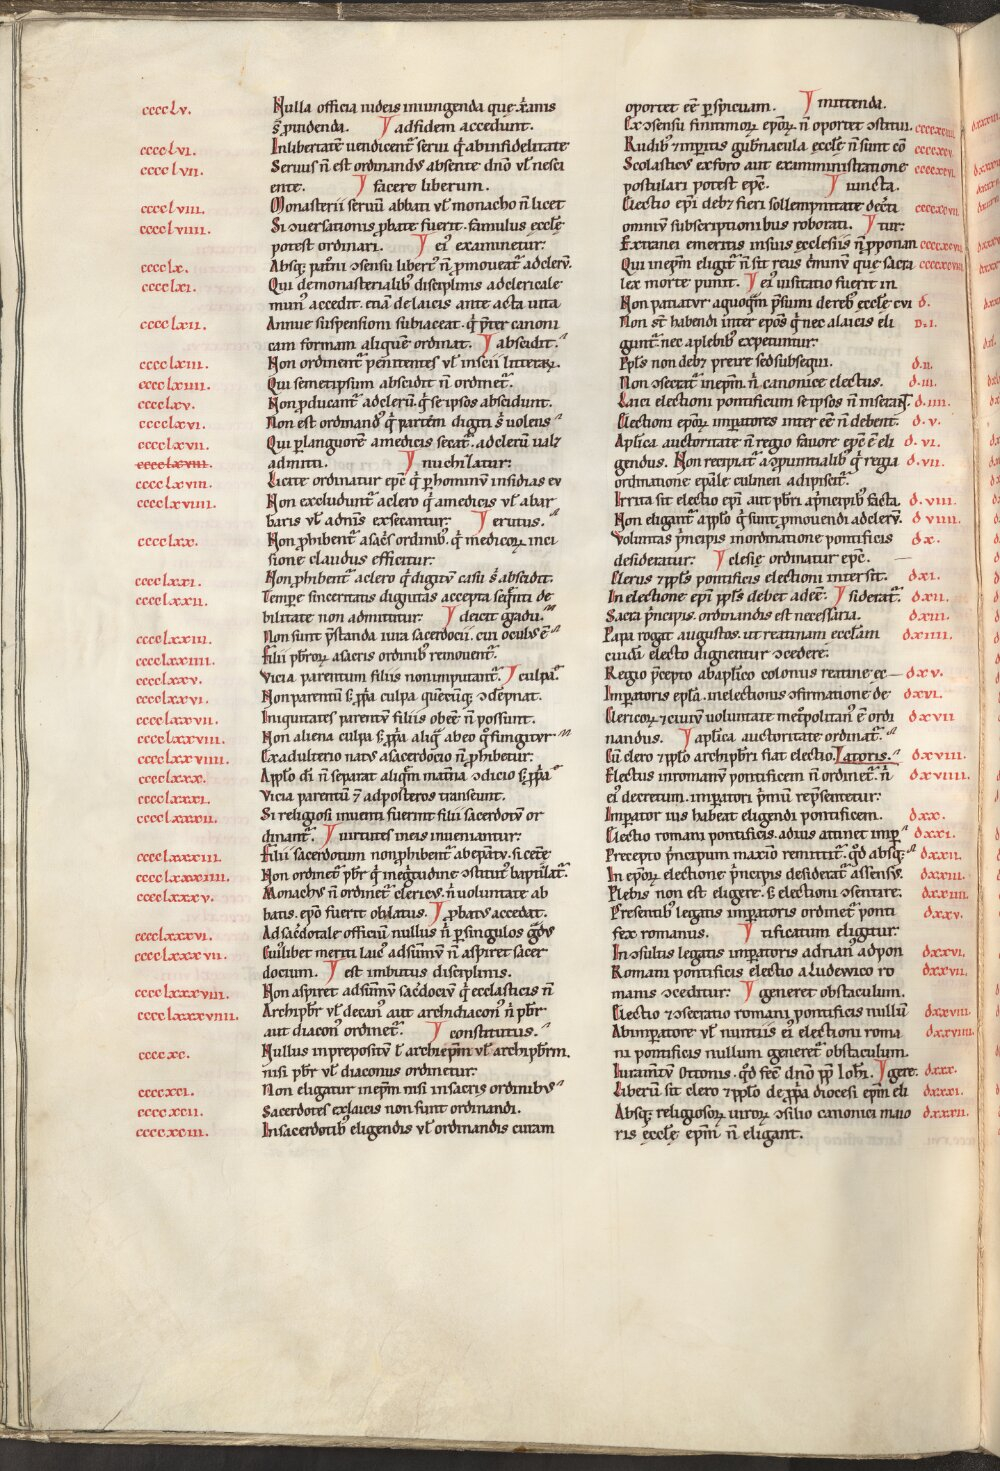 cccclv. Nulla officia iudeis iniungenda que xp̄ianis
s̄ p̄uidenda. ad fidem accedunt.
cccclvi. In libertatē uendicent᷑ serui q̇ ab infidelitate
cccclvii. Seruus n̄ est ordinandus absente dn̄o ul̄ nesci
ente. facere liberum.
cccclviii. Monasterii seruū abbati ul̄ monacho n̄ licet
cccclviiii. Si ↄuersationis ꝓbate fuerit. famulus eccl̄e
potest ordinari. ei᷒ examinetur.
cccclx. Absq; pat᷑ni ↄsensu libert᷒ n̄ ꝓmoueat᷑ ad cler̄.
cccclxi. Qui de monasterialib᷒ disciplinis ad clericale
mun᷒ accedit. etiā de laicis ante acta uita
cccclxii. Annue suspensioni subiaceat. q̇ p̄ter canoni
cam formam aliquē ordinat. abscidit.
cccclxiii. Non ordinent᷑ penitentes ul̄ inscii litterarꝫ.
cccclxiiii. Qui semetipsum abscidit n̄ ordinet᷑.
cccclxv. Non ꝓducant᷑ ad clerū. q̇ se ipsos abscidunt.
cccclxvi. Non est ordinand᷒ q̇ partem digiti s̄ uolens
cccclxvii. Qui p̱ languorē a medicis secat᷑. ad clerū ualꝫ
cccclxviii. admitti. nichilatur.
cccclxviii. Licite ordinatur epc̄ q̇ p̱ hominū insidias eu
cccclxviiii. Non excludunt᷑ a clero q̇ a medicis ul̄ a bar
baris ul̄ a dn̄is exsecantur. erutus.
cccclxx. Non ꝓhibent᷑ a sac̄s ordinib᷒. q̇ medicorꝫ inci
sione claudus efficitur.
cccclxxi. Non ꝓhibent᷑ a clero q̇ digitū casu s̄ abscidit.
cccclxxii. Tempe sinceritatis dignitas accepta seq̄nti de
bilitate non admittitur. deicit gradu.
cccclxxiii. Non sunt p̄standa iura sacerdocii. cui oculus ē
cccclxxiiii. Filii pb̄rorꝫ a sacris ordinib᷒ remouent᷑.
cccclxxv. Vicia parentum filiis non imputant᷑. culpa.
cccclxxvi. Non parentū s̄ ꝓp̄a culpa quēcūq; ↄdēpnat.
cccclxxvii. Iniquitates parentū filiis obeē n̄ possunt.
cccclxxviii. Non aliena culpa s̄ ꝓp̄a aliq̄ ab eo q̊ fungitur
cccclxxviiii. Ex adulterio natus a sacerdocio n̄ ꝓhibetur.
cccclxxx. A pp̄lo dī n̄ separat aliq̄m mat̄na ↄdicio s̄ ꝓp̄a
cccclxxxi. Vicia parentū ⁊ ad posteros transeunt.
cccclxxxii. Si religiosi inuenti fuerint filii sacerdotū or
dinant᷑. uirtutes in eis inueniantur.
cccclxxxiii. Filii sacerdotum non ꝓhibent᷑ ab ep̄atu. si cet̄e
cccclxxxiiii. Non ordinet᷑ pb̄r q̇ in eg̊tudine ↄstitut᷒ baptizat᷑.
cccclxxxv. Monachus n̄ ordinet᷑ clericus. n̄ uoluntate ab
batis. ep̄o fuerit oblatus. ꝓbatus accedat.
cccclxxxvi. Ad sac̄dotale officiū nullus n̄ p̱ singulos g̊d᷒
cccclxxxvii. Cuilibet meriti laic᷒ ad summū n̄ aspiret sacer
docium. est imbutus disciplinis.
cccclxxxviii. Non aspiret ad summū sac̄dociū q̇ ecclesticis n̄
cccclxxxviiii. Archipb̄r ul̄ decan᷒ aut archidiacon᷒ n̄ pb̄r
aut diacon᷒ ordinet᷑. constitutus.
ccccxc. Nullus in prepositū ul̄ archiep̄m ul̄ archipb̄rm.
nisi pb̄r ul̄ diaconus ordinetur.
ccccxci. Non eligatur in ep̄m nisi in sacris ordinibus
ccccxcii. Sacerdotes ex laicis non sunt ordinandi.
ccccxciii. In sacerdotib᷒ eligendis ul̄ ordinandis curam
oportet eē p̱spicuam. mittenda.
Ex ↄsensu finitimorꝫ ep̄orꝫ n̄ oportet ↄstitui. ccccxciiii.
Rudib᷒ ⁊ imp̱itis gub̄nacula eccl̄e n̄ sunt cō ccccxcv.
Scolasticus ex foro aut ex amministratione ccccxcvi.
postulari potest epc̄. iuncta.
Electio ep̄i debꝫ fieri sollempnitate decr̄ti ccccxcvii.
omniū subscriptionibus roborati. tur.
Extranei emeritis in suis ecclesiis n̄ p̄ponan ccccxcviii.
Qui in ep̄m eligit᷑ n̄ sit reus c̄minū que sacra ccccxcviiii.
lex morte punit. ei᷒ uisitatio fuerit in
Non patiatur a quoq̄m p̄sumi de reb᷒ eccl̄e cui d.
Non st̄ habendi inter ep̄os q̇ nec a laicis eli d.i.
gunt᷑ nec a plebib᷒ expetuntur.
Pp̄ls non debꝫ preire sed subsequi. d.ii.
Non ↄsecrat᷑ in ep̄m. n̄ canonice electus. d.iii.
Laici electioni pontificum se ipsos n̄ inserant. d.iiii.
Electioni ep̄orꝫ imp̱atores inter eē n̄ debent. d.v.
Ap̄lica auctoritate n̄ regio fauore epc̄ ē eli d.vi.
gendus. Non recipiat᷑ a ↄprouintialib᷒ q̇ regia d.vii.
ordinatione ep̄ale culmen adipiscit᷑.
Irrita sit electio ep̄i aut pb̄ri a p̄ncipib᷒ facta. d.viii.
Non eligant᷑ a pp̄lo q̇ sunt ꝓmouendi ad clerū. d.viiii.
Voluntas p̄ncipis in ordinatione pontificis dx.
desideratur. clesie ordinatur epc̄.
Clerus ⁊ pp̄ls pontificis electioni intersit. dxi.
In electione ep̄i pp̄ls debet adeē. siderat᷑. dxii.
Sacra p̄ncipis. ordinandis est necessaria. dxiii.
Papa rogat augustos. ut reatinam eccl̄am dxiiii.
cuidā electo dignentur ↄcedere.
Regio p̄cepto ab ap̄lico colonus reatine ec dxv.
Imp̱atoris epl̄a. in electionis ↄfirmatione de dxvi.
Clericorꝫ ⁊ ciuiū uoluntate met᷑politan᷒ ē ordi dxvii
nandus. ap̄lica auctoritate ordinat᷑.
Cū clero ⁊ pp̄lo archipb̄ri fiat electio. latoris. dxviii.
Electus in romanū pontificem n̄ ordinet᷑. n̄ dxviiii.
ei᷒ decretum. imp̱atori p̄mū rep̄sentetur.
Imp̱ator ius habeat eligendi pontificem. dxx.
Electio romani pontificis. ad ius attinet imp̱ dxxi.
Precepto p̄ncipum maxīo remittit᷑. q̊d absq; dxxii.
In ep̄orꝫ electione p̄ncipis desiderat᷑ assensus. dxxiii.
Plebis non est eligere. s̄ electioni ↄsentire. dxxiiii.
Presentib᷒ legatis imp̱atoris ordinet᷑ ponti dxxv.
fex romanus. tificatum eligitur
Inↄsultis legatis imp̱atoris adrian᷒ ad pon dxxvi.
Romani pontificis electio a ludewico ro dxxvii.
manis ↄceditur. generet obstaculum.
Electio ⁊ ↄsecratio romani pontificis nullū dxxviii
Ab imp̱atore ul̄ nuntiis ei᷒ electioni roma dxxviiii.
ni pontificis nullum generet᷑ obstaculum.
Iuramtū Ottonis. q̊d fec̄ dn̄o pp̄ ioh̄i. gere. dxxx.
Liberū sit clero ⁊ pp̄lo de ꝓp̄a diocesi ep̄m eli dxxxi.
Absq; religiosorꝫ uirorꝫ ↄsilio canonici maio dxxxii.
ris eccl̄e ep̄m n̄ eligant.